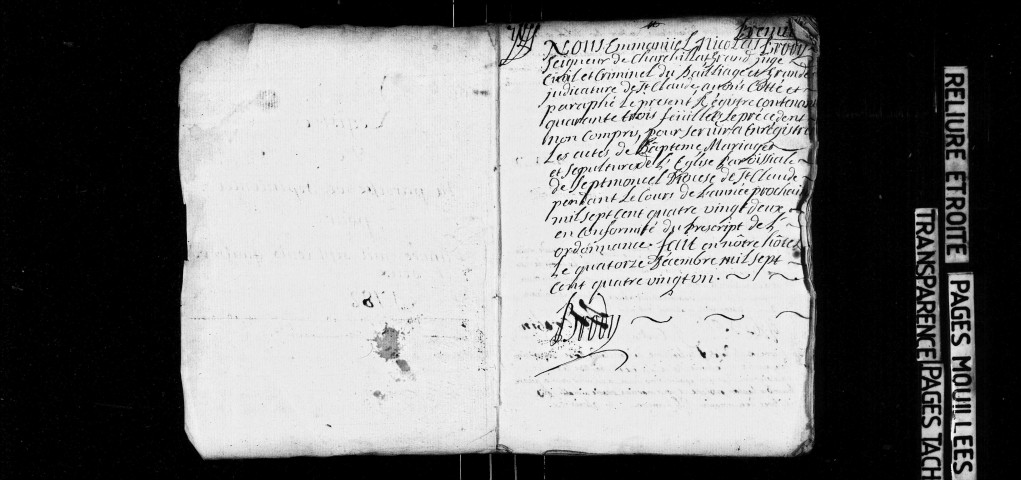 premier
Nous Emmanuel Nicolas Brody
Seigneur de Charchilla Grand juge
Civil et Criminel du Bailliage et Grande
judicature de St Claude avons Cotté et
paraphé Le present Régistre Contenant
quarante trois feuillets Le précedent
non Compris, pour servir a Enregistre
Les actes de Bapteme Mariages
et Sepulture de L'Eglise Paroissiale
de Septmoncel Diocese de St Claude
pendant Le Cours de L'année prochain
mil sept cent quatre vingt deux
en conformité du prescript de L'
ordonnance. fait en nôtre hôtel
Le quatorze Décembre mil sept
cent quatre vingt un.
Brody
1782
RELIURE ETROITE
PAGES MOUILLEES
TRANSPARENCE
PAGES TACH